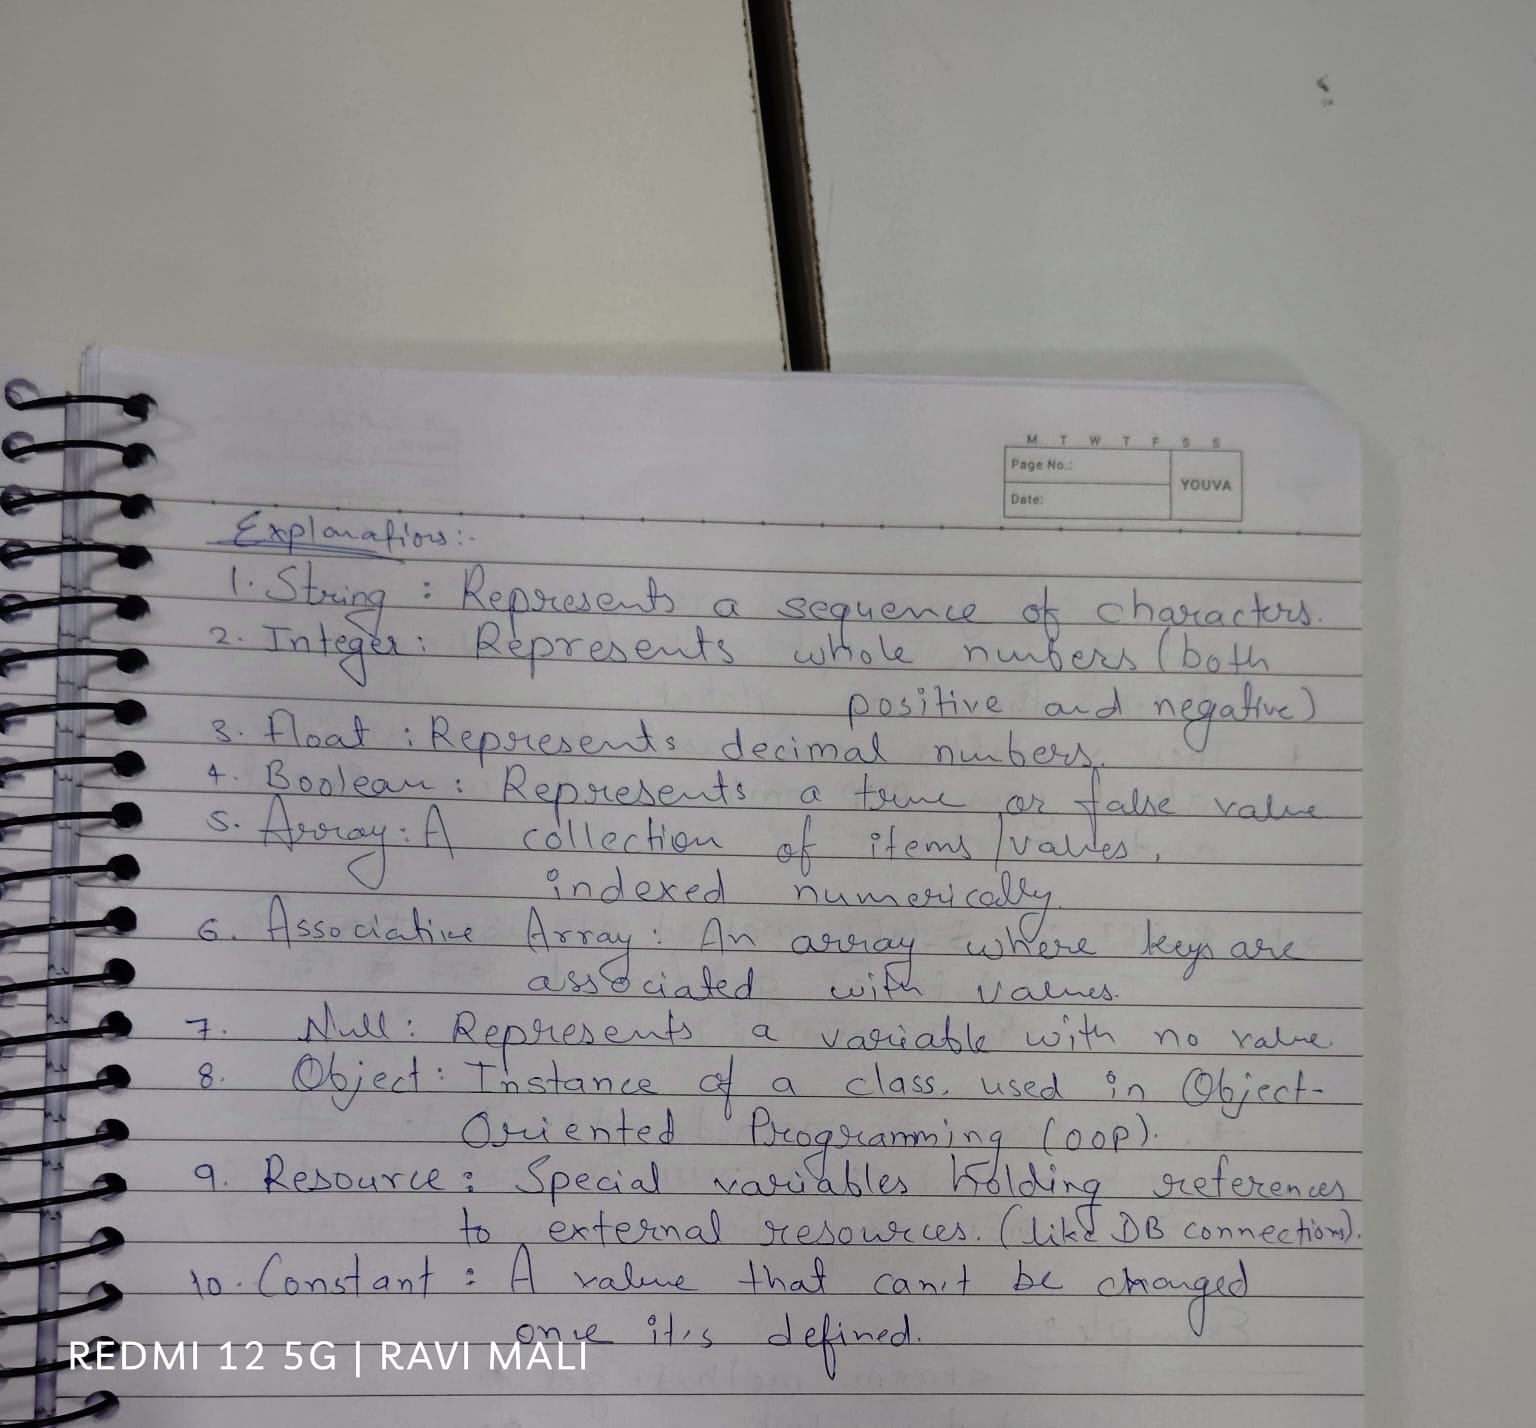 M T W T F S S
Page No.:
YOUVA
Date:
Explanations:-
1. String : Represents a sequence of characters.
2. Integer : Represents whole numbers (both
positive and negative)
3. Float : Represents decimal numbers.
4. Boolean : Represents a true or false value
5. Array : A collection of items/values,
indexed numerically.
6. Associative Array : An array where keys are
associated with values.
7. Null : Represents a variable with no value.
8. Object : Instance of a class, used in Object-
Oriented Programming (OOP).
9. Resource : Special variables holding references
to external resources. (like DB connections).
10. Constant : A value that can't be changed
once it's defined.
REDMI 12 5G | RAVI MALI